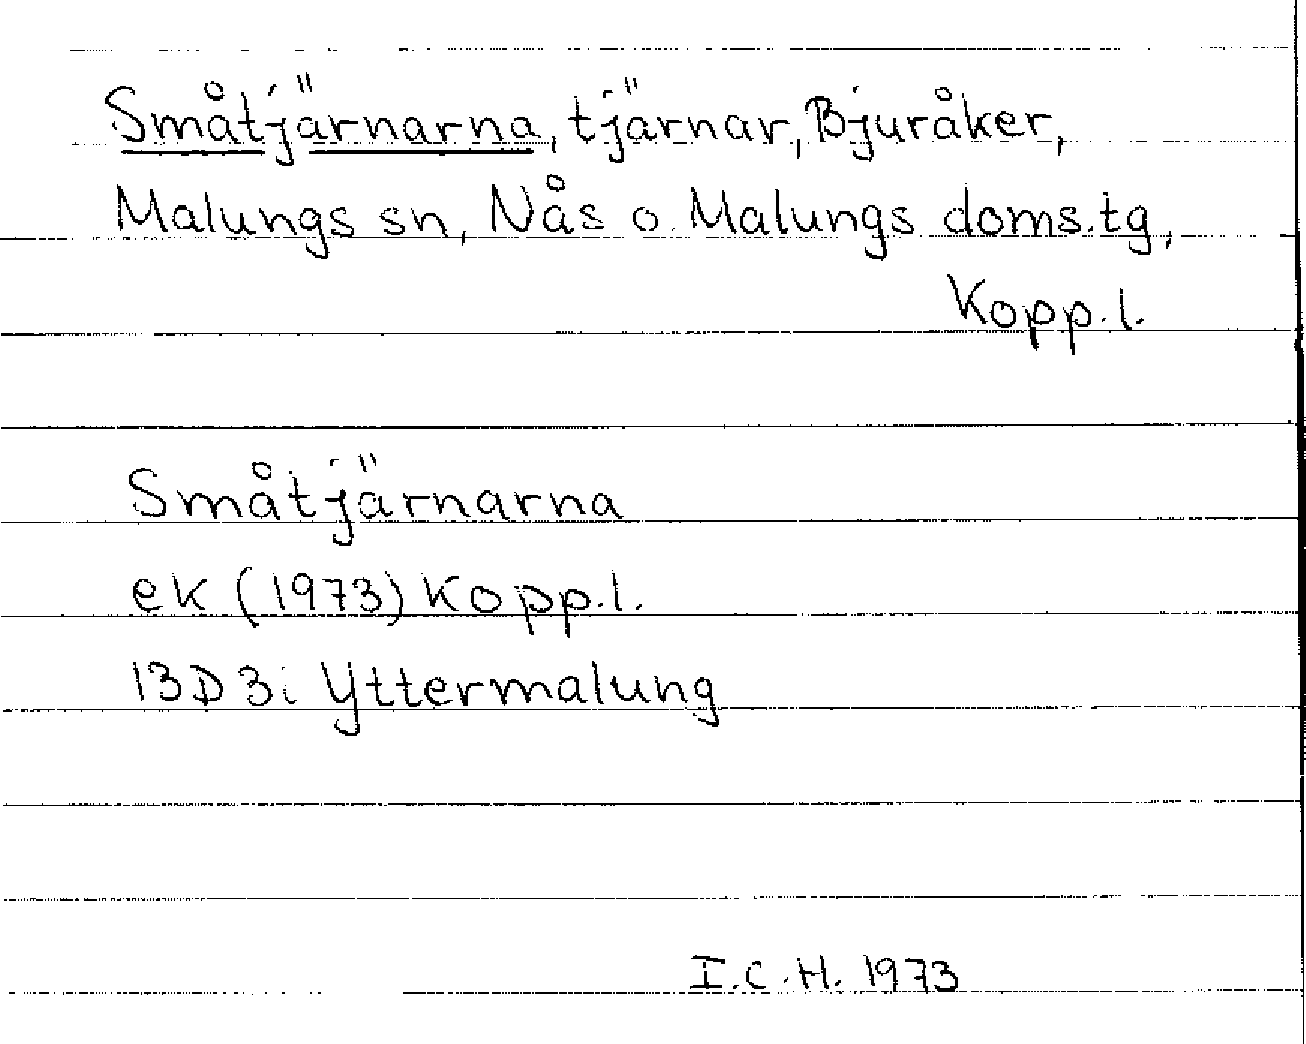 Småtjärnarna, tjärnar, Bjuråker,
Malungs sn, Nås o. Malungs doms.tg,
Kopp.l.
Småtjärnarna
ek (1973) Kopp.l.
13D 3i Yttermalung
I.C.H. 1973